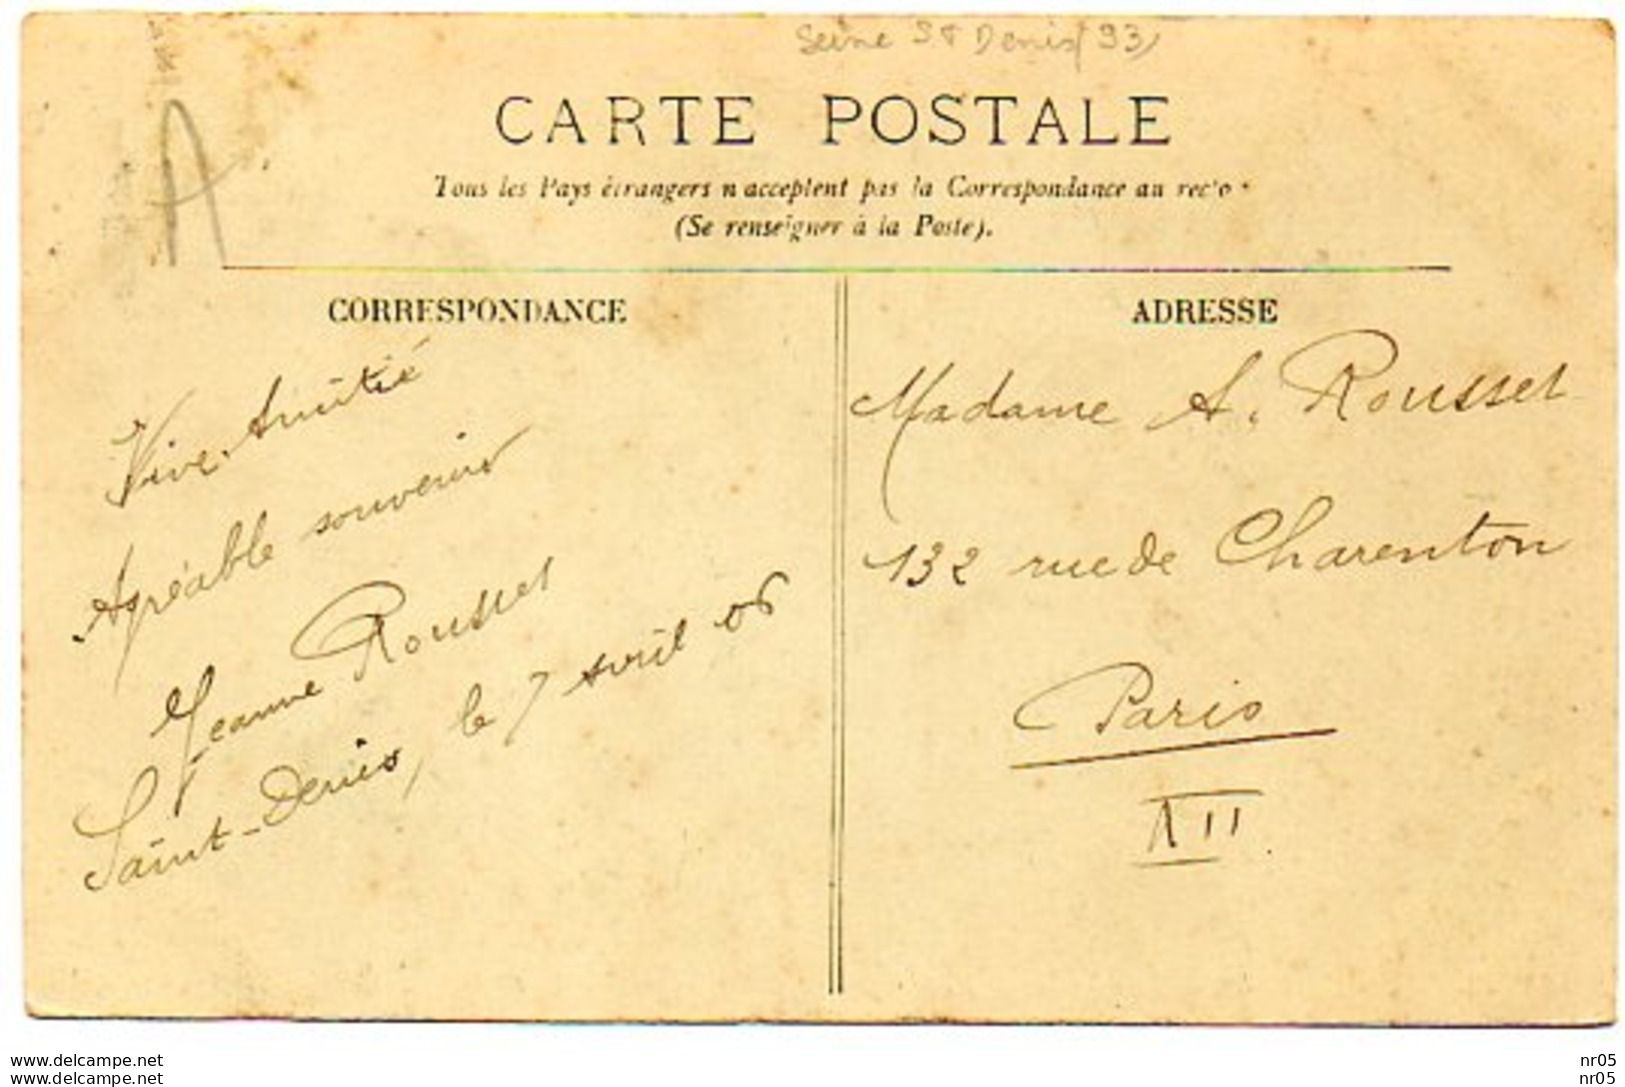 Seine St Denis (93)
A
CARTE POSTALE
Tous les Pays étrangers n'acceptent pas la Correspondance au recto
(Se renseigner à la Poste).
CORRESPONDANCE
Vive Amitié
Agréable souvenir
Jeanne Rousset
Saint-Denis, le 7 avril 06
ADRESSE
Madame A. Rousset
132 rue de Charenton
Paris
XII
www.delcampe.net
www.delcampe.net
nr05
nr05